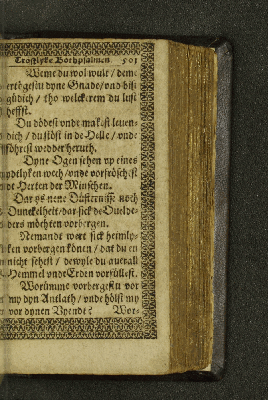 Trostlyke Bothpsalmen. 501
Weme du wol wult / deme
ertögestu dyne Gnade / vnd bist
güdich / tho welckerem du lust
heffst.
Du dödest vnde makest leuen-
dich / du störst in de Helle / vnde
föhrest wedder heruth.
Dyne Ogen sehen vp eines
ydtlyken wech / vnde vorsröschest
de Herten der Minschen.
Dar ys nene Düsternisse noch
Dunckelheit / dar sick de Ouelde-
ders möchten vorbergen.
Nemandt wert sick heimly-
ken vorbergen könen / dat du en
nicht sehest / dewyle du auerall
Hemmel vnde Erden voruüllest.
Worümme vorbergestu vor
my dyn Antlath / vnde höltst my
vor dynen Vyendt? Wor-